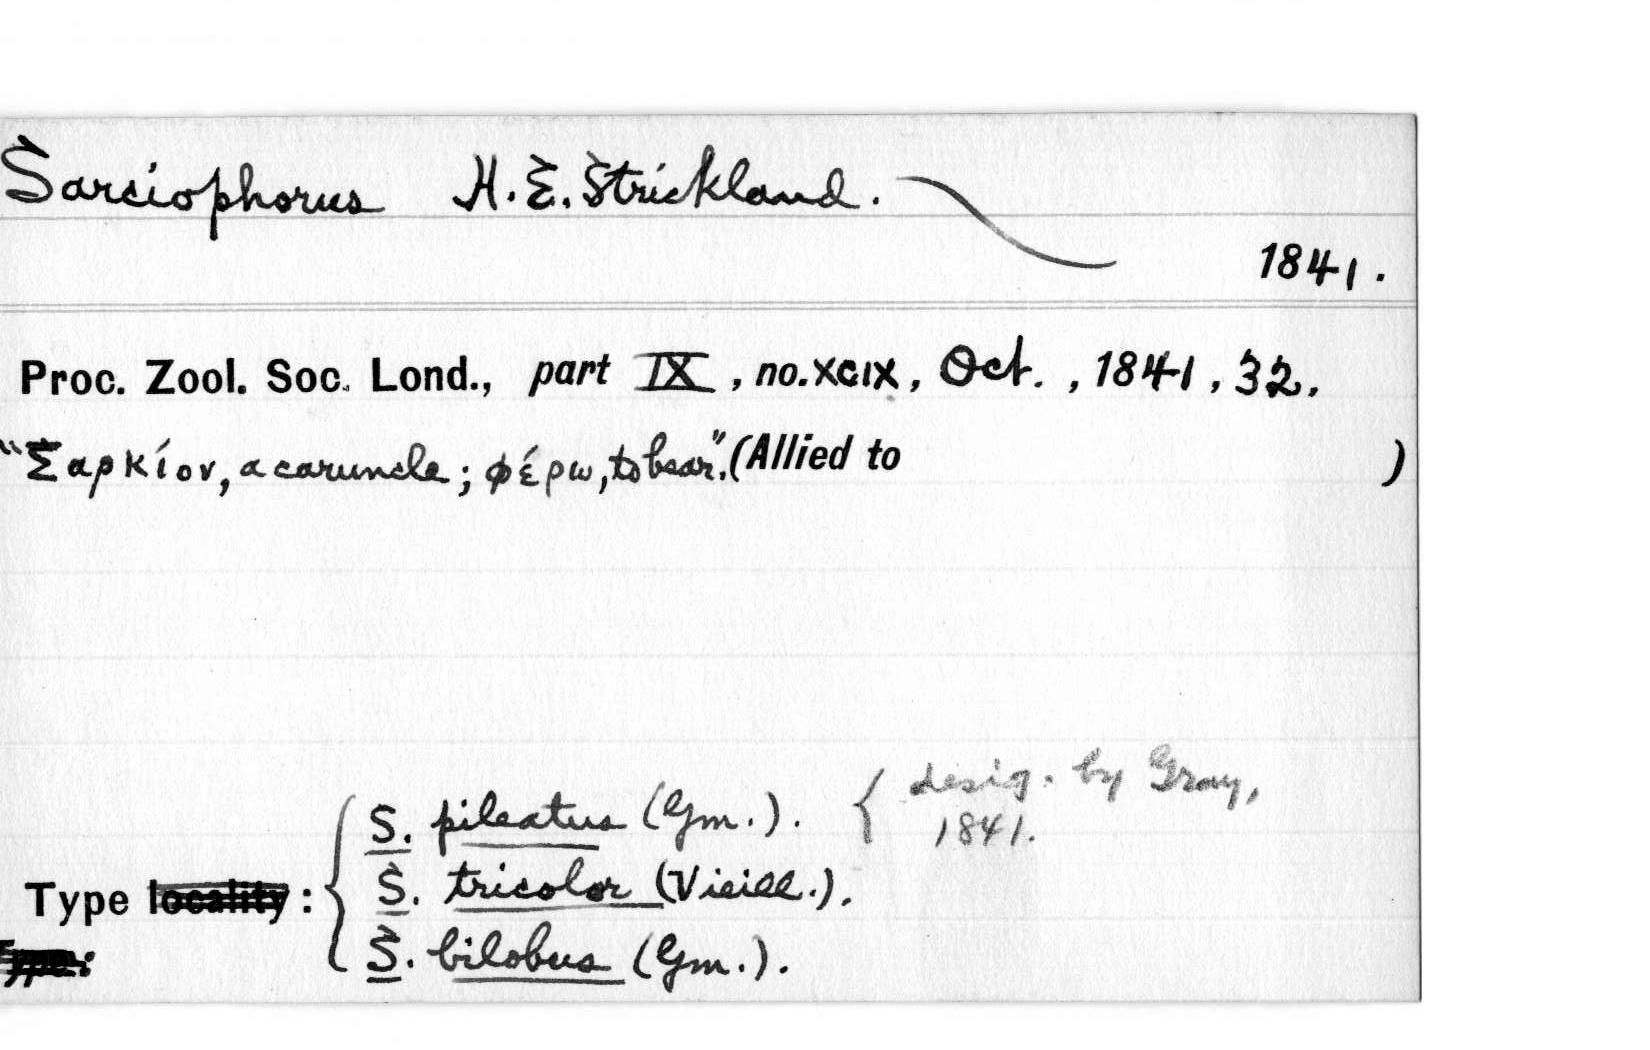 Sarciophorus H. E. Strickland.
1841.
Proc. Zool. Soc. Lond., part IX, no. XCIX, Oct., 1841, 32.
"Σαρκίον, a caruncle; φέρω, to bear". (Allied to )
S. pileatus (Gm.). { desig. by Gray,
1841.
Type locality: { S. tricolor (Vieill.).
S. bilobus (Gm.).
Type: